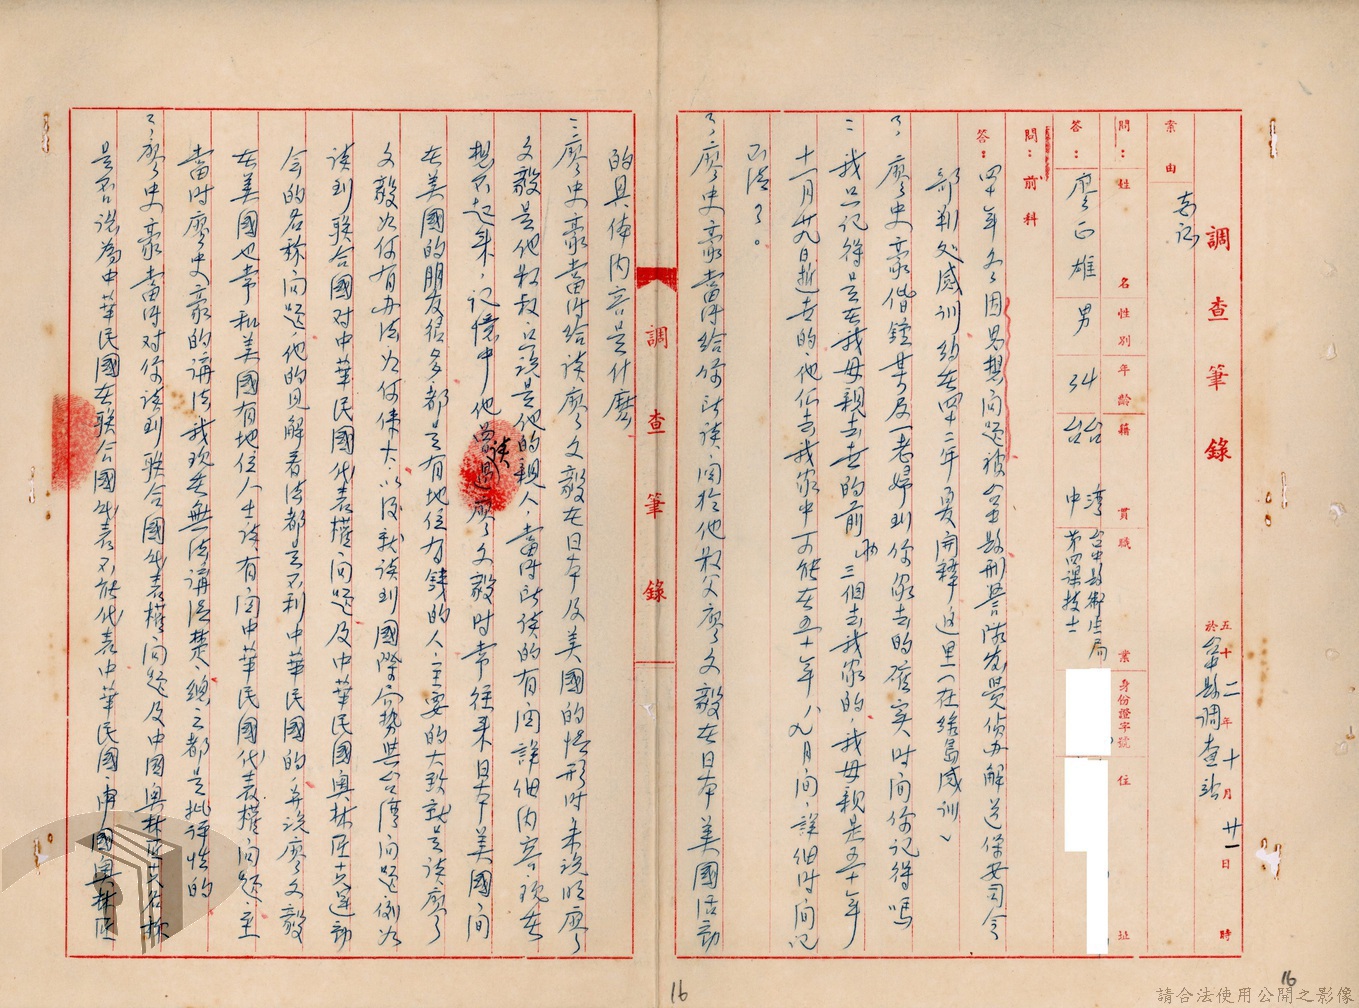 調查筆錄
五十二年十月廿一日 時
於 縣調查站
案由
問：姓名 性別 年齡 籍貫 職業 身份證字號 住址
答：廖正雄 男 34 台灣台中 台中縣衛生局第四課技士
問：前科
答：四十年冬因思想問題被 縣刑警隊 偵办解送保安司令
部 処感訓約在四十二年夏開釋這里（在綠島感訓）
了，廖史豪偕鐘某及一老婦到你家去的確实时间你記得嗎
：我只记得是在我母親去世的前 三個去我家的，我母親是五十年
十一月廿九日逝世的，他们去我家中可能在五十年八九月间，詳细时间记
不清了。
了，廖史豪當时給你所谈関於他叔父廖文毅在日本美國活動
的具体内容是什麽
：廖史豪當时給谈廖文毅在日本及美國的情形时未说明廖
文毅是他叔叔只说是他的親人，當时所谈的有関詳细内容，現在
想不起来，记憶中他曾谈過廖文毅时常往来日本美國间
在美國的朋友很多都是有地位有錢的人，主要的大致就是谈廖
文毅如何有办法如何偉大，以後就谈到國際局势與台灣问题例如
谈到联合國对中華民國代表權问题及中華民國奥林匹克運動
会的名称问题，他的見解看法都是不利中華民國的，并说廖文毅
在美國也常和美國有地位人士谈有関中華民國代表權问题，至
當时廖史豪的講法我現在無法講清楚，總之都是批评性的
了，廖史豪當时对你谈到联合國代表權问题及中國奥林匹克名称
是否認為中華民國在联合國代表不能代表中華民國，中國奥林匹
調查筆錄
16
16
請合法使用公開之影像